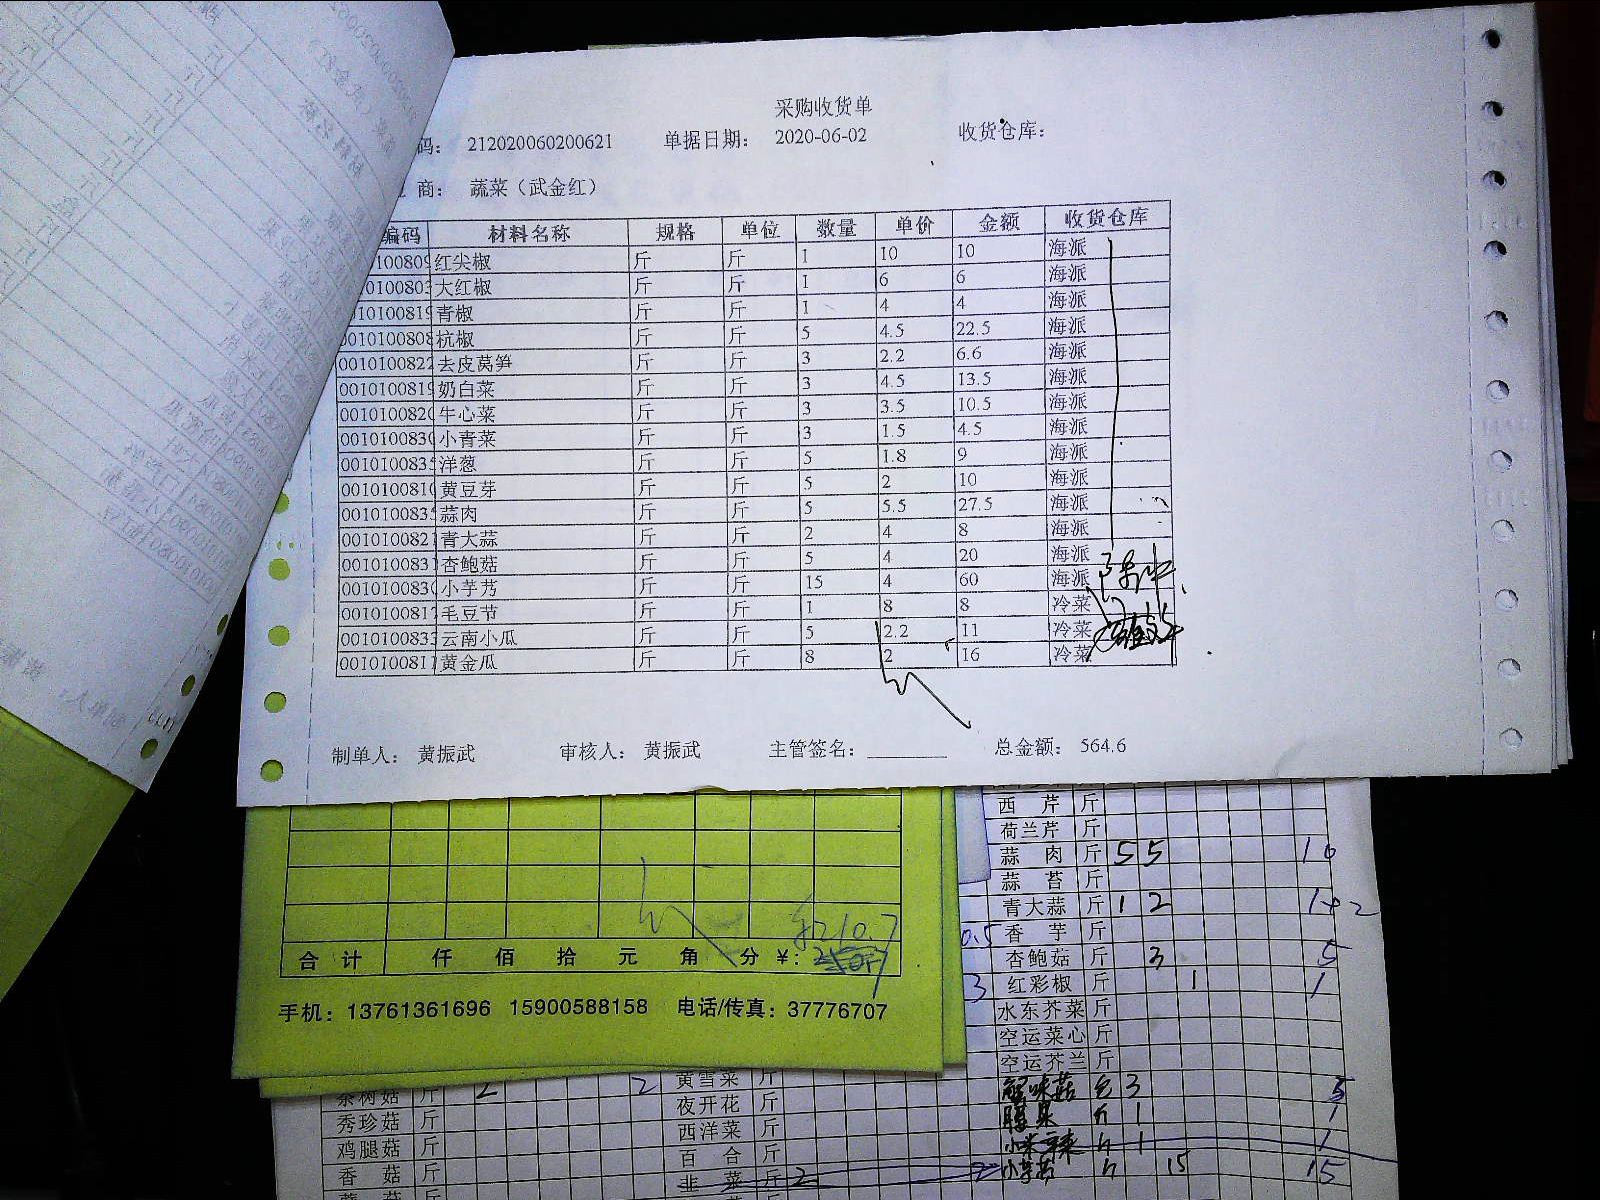 采购收货单
码： 212020060200621 单据日期： 2020-06-02 收货仓库：
商： 蔬菜（武金红）
编码 材料名称 规格 单位 数量 单价 金额 收货仓库
100809 红尖椒 斤 斤 1 10 10 海派
010100803 大红椒 斤 斤 1 6 6 海派
010100819 青椒 斤 斤 1 4 4 海派
0010100808 杭椒 斤 斤 5 4.5 22.5 海派
0010100822 去皮莴笋 斤 斤 3 2.2 6.6 海派
0010100819 奶白菜 斤 斤 3 4.5 13.5 海派
001010082 牛心菜 斤 斤 3 3.5 10.5 海派
001010083 小青菜 斤 斤 3 1.5 4.5 海派
001010083 洋葱 斤 斤 5 1.8 9 海派
001010081 黄豆芽 斤 斤 5 2 10 海派
001010083 蒜肉 斤 斤 5 5.5 27.5 海派
001010082 青大蒜 斤 斤 2 4 8 海派
001010083 杏鲍菇 斤 斤 5 4 20 海派
001010083 小芋艿 斤 斤 15 4 60 海派
001010081 毛豆节 斤 斤 1 8 8 冷菜
001010083 云南小瓜 斤 斤 5 2.2 11 冷菜
001010081 黄金瓜 斤 斤 8 2 16 冷菜
制单人： 黄振武 审核人： 黄振武 主管签名： 总金额： 564.6
西 芹 斤
荷兰芹 斤
蒜 肉 斤 5 5 10
蒜 苔 斤
青大蒜 斤 1 2 1+2
0.5 香 芋 斤
杏鲍菇 斤 3 5
3 红彩椒 斤 1 1
水东芥菜 斤
空运菜心 斤
空运芥兰 斤
蟹味菇 3 5
斤 1 1
小米辣 1 1
15 15
210.7
合 计 仟 佰 拾 元 角 分 ¥:
手机：13761361696 15900588158 电话/传真：37776707
茶树菇 斤 2 2 黄雪菜 斤
秀珍菇 斤 夜开花 斤
鸡腿菇 斤 西洋菜 斤
香 菇 斤 百 合 斤
韭 菜 斤 2 2